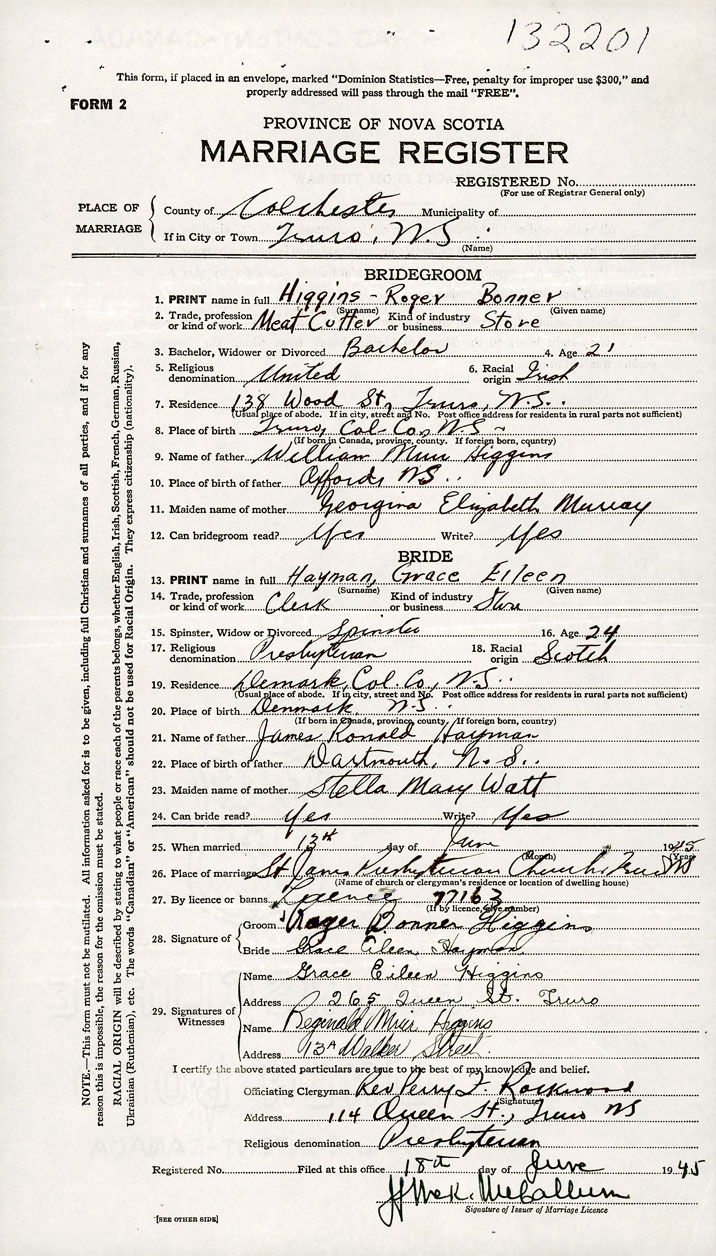 132201
This form, if placed in an envelope, marked "Dominion Statistics—Free, penalty for improper use $300," and
properly addressed will pass through the mail "FREE".
FORM 2
PROVINCE OF NOVA SCOTIA
MARRIAGE REGISTER
REGISTERED No.
(For use of Registrar General only)
PLACE OF MARRIAGE
County of Colchester Municipality of
If in City or Town Truro, N.S.
(Name)
BRIDEGROOM
1. PRINT name in full Higgins - Roger Bonner
(Surname) (Given name)
2. Trade, profession or kind of work Meat Cutter Kind of industry or business Store
3. Bachelor, Widower or Divorced Bachelor 4. Age 21
5. Religious denomination United 6. Racial origin Irish
7. Residence 138 Wood St, Truro, N.S.
(Usual place of abode. If in city, street and No. Post office address for residents in rural parts not sufficient)
8. Place of birth Truro, Col. Co. N.S.
(If born in Canada, province, county. If foreign born, country)
9. Name of father William Muir Higgins
10. Place of birth of father Oxford, NS.
11. Maiden name of mother Georgina Elizabeth Murray
12. Can bridegroom read? Yes Write? Yes
BRIDE
13. PRINT name in full Hayman, Grace Eileen
(Surname) (Given name)
14. Trade, profession or kind of work Clerk Kind of industry or business Store
15. Spinster, Widow or Divorced Spinster 16. Age 24
17. Religious denomination Presbyterian 18. Racial origin Scotch
19. Residence Demark, Col. Co., N.S.
(Usual place of abode. If in city, street and No. Post office address for residents in rural parts not sufficient)
20. Place of birth Denmark. N.S.
(If born in Canada, province, county. If foreign born, country)
21. Name of father James Ronald Hayman
22. Place of birth of father Dartmouth, N.S.
23. Maiden name of mother Stella Mary Watt
24. Can bride read? Yes Write? Yes
25. When married 13th day of June 1945
(Month) (Year)
26. Place of marriage St James Presbyterian Church Truro NS
(Name of church or clergyman's residence or location of dwelling house)
27. By licence or banns Licence 77163
(If by licence, give number)
28. Signature of
Groom Roger Bonner Higgins
Bride Grace Eileen Hayman
29. Signatures of Witnesses
Name Grace Eileen Higgins
Address 265 Queen St. Truro
Name Reginald Muir Higgins
Address 13A Walker Street
I certify the above stated particulars are true to the best of my knowledge and belief.
Officiating Clergyman Rev Perry F. Rockwood
(Signature)
Address 114 Queen St., Truro NS
Religious denomination Presbyterian
Registered No. Filed at this office 18th day of June 1945
McCallum
Signature of Issuer of Marriage Licence
[SEE OTHER SIDE]
NOTE.—This form must not be mutilated. All information asked for is to be given, including full Christian and surnames of all parties, and if for any
reason this is impossible, the reason for the omission must be stated.
RACIAL ORIGIN will be described by stating to what people or race each of the parents belongs, whether English, Irish, Scottish, French, German, Russian,
Ukrainian (Ruthenian), etc. The words "Canadian" or "American" should not be used for Racial Origin. They express citizenship (nationality).